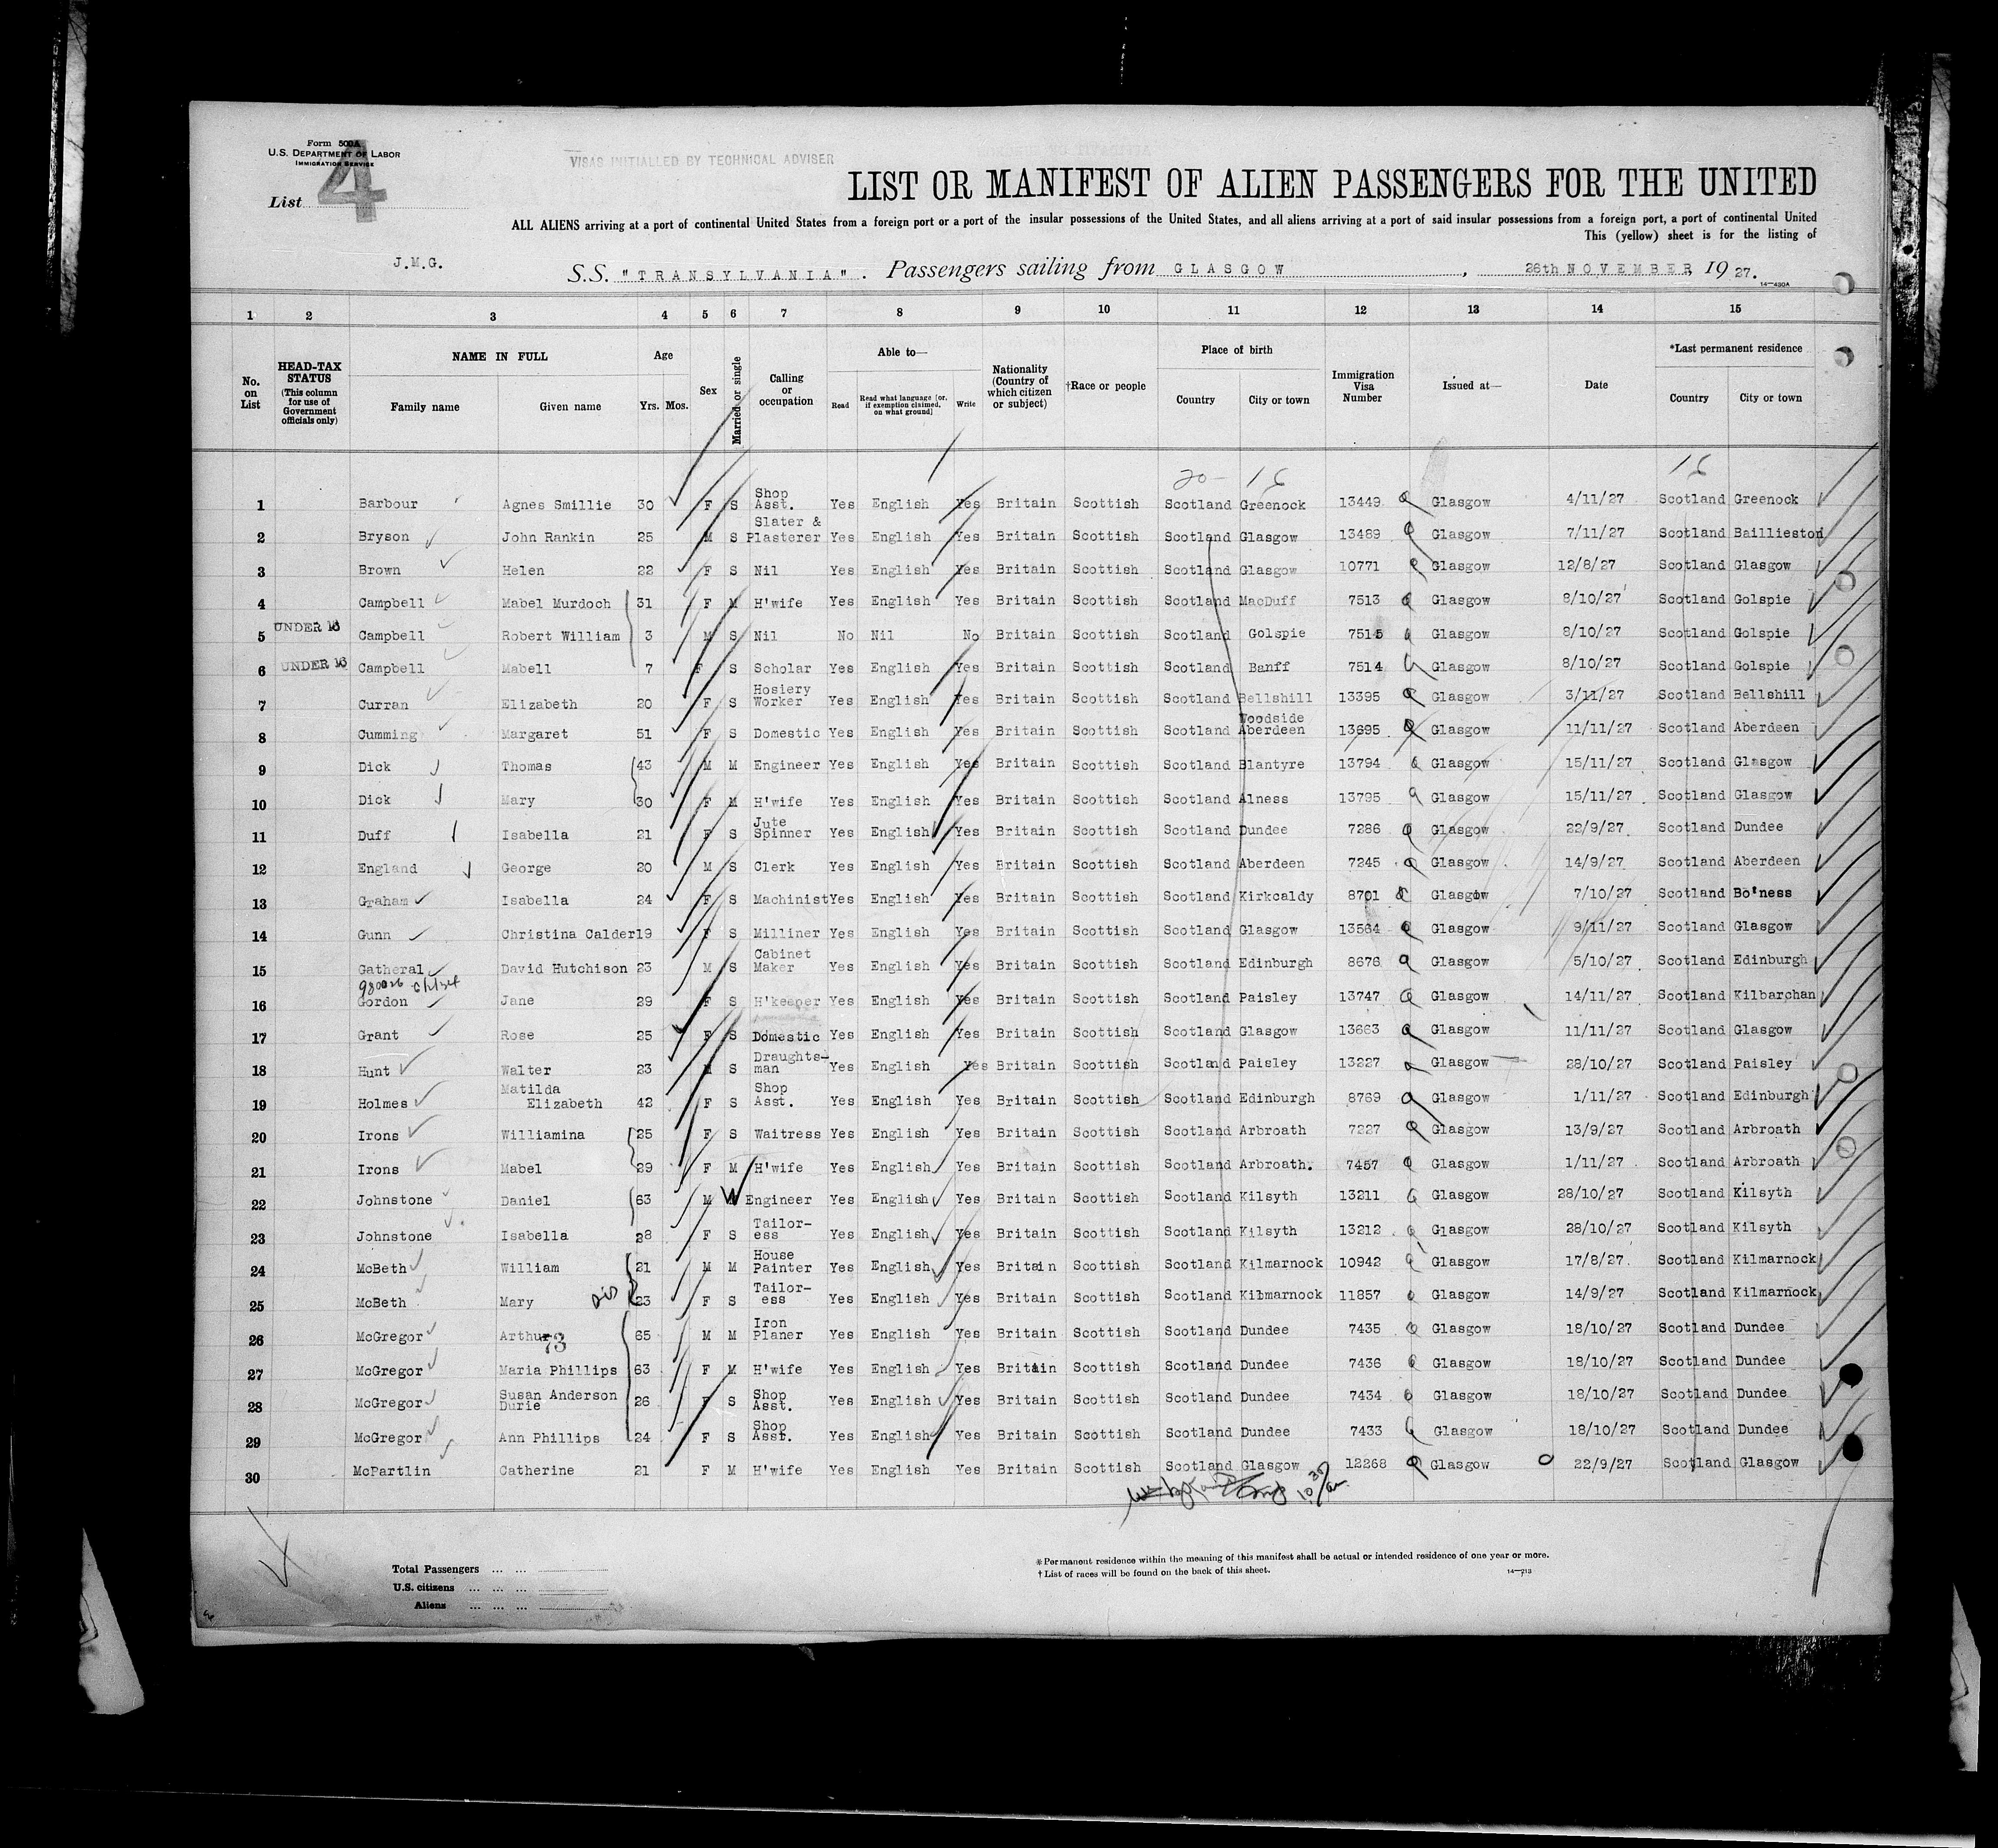 Form 500A
U.S. DEPARTMENT OF LABOR
IMMIGRATION SERVICE
VISAS INITIALLED BY TECHNICAL ADVISER
List 4
LIST OR MANIFEST OF ALIEN PASSENGERS FOR THE UNITED
ALL ALIENS arriving at a port of continental United States from a foreign port or a port of the insular possessions of the United States, and all aliens arriving at a port of said insular possessions from a foreign port, a port of continental United
This (yellow) sheet is for the listing of
J.M.G.
S.S. "TRANSYLVANIA". Passengers sailing from GLASGOW, 26th NOVEMBER, 1927.
14—430A
1 2 3 4 5 6 7 8 9 10 11 12 13 14 15
No. on List
HEAD-TAX STATUS (This column for use of Government officials only)
NAME IN FULL Family name Given name
Age Yrs. Mos.
Sex
Married or single
Calling or occupation
Able to— Read Read what language [or, if exemption claimed, on what ground] Write
Nationality (Country of which citizen or subject)
†Race or people
Place of birth Country City or town
Immigration Visa Number
Issued at—
Date
*Last permanent residence Country City or town
20- 16 16
1 Barbour Agnes Smillie 30 F S Shop Asst. Yes English Yes Britain Scottish Scotland Greenock 13449 Glasgow 4/11/27 Scotland Greenock
2 Bryson John Rankin 25 M S Slater & Plasterer Yes English Yes Britain Scottish Scotland Glasgow 13489 Glasgow 7/11/27 Scotland Baillieston
3 Brown Helen 22 F S Nil Yes English Yes Britain Scottish Scotland Glasgow 10771 Glasgow 12/8/27 Scotland Glasgow
4 Campbell Mabel Murdoch 31 F M H'wife Yes English Yes Britain Scottish Scotland MacDuff 7513 Glasgow 8/10/27 Scotland Golspie
5 UNDER 16 Campbell Robert William 3 M S Nil No Nil No Britain Scottish Scotland Golspie 7515 Glasgow 8/10/27 Scotland Golspie
6 UNDER 16 Campbell Mabell 7 F S Scholar Yes English Yes Britain Scottish Scotland Banff 7514 Glasgow 8/10/27 Scotland Golspie
7 Curran Elizabeth 20 F S Hosiery Worker Yes English Yes Britain Scottish Scotland Bellshill 13395 Glasgow 3/11/27 Scotland Bellshill
8 Cumming Margaret 51 F S Domestic Yes English Yes Britain Scottish Scotland Woodside Aberdeen 13695 Glasgow 11/11/27 Scotland Aberdeen
9 Dick Thomas 43 M M Engineer Yes English Yes Britain Scottish Scotland Blantyre 13794 Glasgow 15/11/27 Scotland Glasgow
10 Dick Mary 30 F M H'wife Yes English Yes Britain Scottish Scotland Alness 13795 Glasgow 15/11/27 Scotland Glasgow
11 Duff Isabella 21 F S Jute Spinner Yes English Yes Britain Scottish Scotland Dundee 7286 Glasgow 22/9/27 Scotland Dundee
12 England George 20 M S Clerk Yes English Yes Britain Scottish Scotland Aberdeen 7245 Glasgow 14/9/27 Scotland Aberdeen
13 Graham Isabella 24 F S Machinist Yes English Yes Britain Scottish Scotland Kirkcaldy 8701 Glasgow 7/10/27 Scotland Bo'ness
14 Gunn Christina Calder 19 F S Milliner Yes English Yes Britain Scottish Scotland Glasgow 13564 Glasgow 9/11/27 Scotland Glasgow
15 Gatheral David Hutchison 23 M S Cabinet Maker Yes English Yes Britain Scottish Scotland Edinburgh 8676 Glasgow 5/10/27 Scotland Edinburgh
16 Gordon Jane 29 F S H'keeper Yes English Yes Britain Scottish Scotland Paisley 13747 Glasgow 14/11/27 Scotland Kilbarchan
17 Grant Rose 25 F S Domestic Yes English Yes Britain Scottish Scotland Glasgow 13663 Glasgow 11/11/27 Scotland Glasgow
18 Hunt Walter 23 M S Draughts-man Yes English Yes Britain Scottish Scotland Paisley 13227 Glasgow 28/10/27 Scotland Paisley
19 Holmes Matilda Elizabeth 42 F S Shop Asst. Yes English Yes Britain Scottish Scotland Edinburgh 8769 Glasgow 1/11/27 Scotland Edinburgh
20 Irons Williamina 25 F S Waitress Yes English Yes Britain Scottish Scotland Arbroath 7227 Glasgow 13/9/27 Scotland Arbroath
21 Irons Mabel 29 F M H'wife Yes English Yes Britain Scottish Scotland Arbroath. 7457 Glasgow 1/11/27 Scotland Arbroath
22 Johnstone Daniel 63 M W Engineer Yes English Yes Britain Scottish Scotland Kilsyth 13211 Glasgow 28/10/27 Scotland Kilsyth
23 Johnstone Isabella 28 F S Tailor-ess Yes English Yes Britain Scottish Scotland Kilsyth 13212 Glasgow 28/10/27 Scotland Kilsyth
24 McBeth William 21 M M House Painter Yes English Yes Britain Scottish Scotland Kilmarnock 10942 Glasgow 17/8/27 Scotland Kilmarnock
25 McBeth Mary 23 F S Tailor-ess Yes English Yes Britain Scottish Scotland Kilmarnock 11857 Glasgow 14/9/27 Scotland Kilmarnock
26 McGregor Arthur 73 65 M M Iron Planer Yes English Yes Britain Scottish Scotland Dundee 7435 Glasgow 18/10/27 Scotland Dundee
27 McGregor Maria Phillips 63 F M H'wife Yes English Yes Britain Scottish Scotland Dundee 7436 Glasgow 18/10/27 Scotland Dundee
28 McGregor Susan Anderson Durie 26 F S Shop Asst. Yes English Yes Britain Scottish Scotland Dundee 7434 Glasgow 18/10/27 Scotland Dundee
29 McGregor Ann Phillips 24 F S Shop Asst. Yes English Yes Britain Scottish Scotland Dundee 7433 Glasgow 18/10/27 Scotland Dundee
30 McPartlin Catherine 21 F M H'wife Yes English Yes Britain Scottish Scotland Glasgow 12268 Glasgow 22/9/27 Scotland Glasgow
Total Passengers ... ...
U.S. citizens ... ... ...
Aliens ... ... ...
*Permanent residence within the meaning of this manifest shall be actual or intended residence of one year or more.
†List of races will be found on the back of this sheet.
14—713